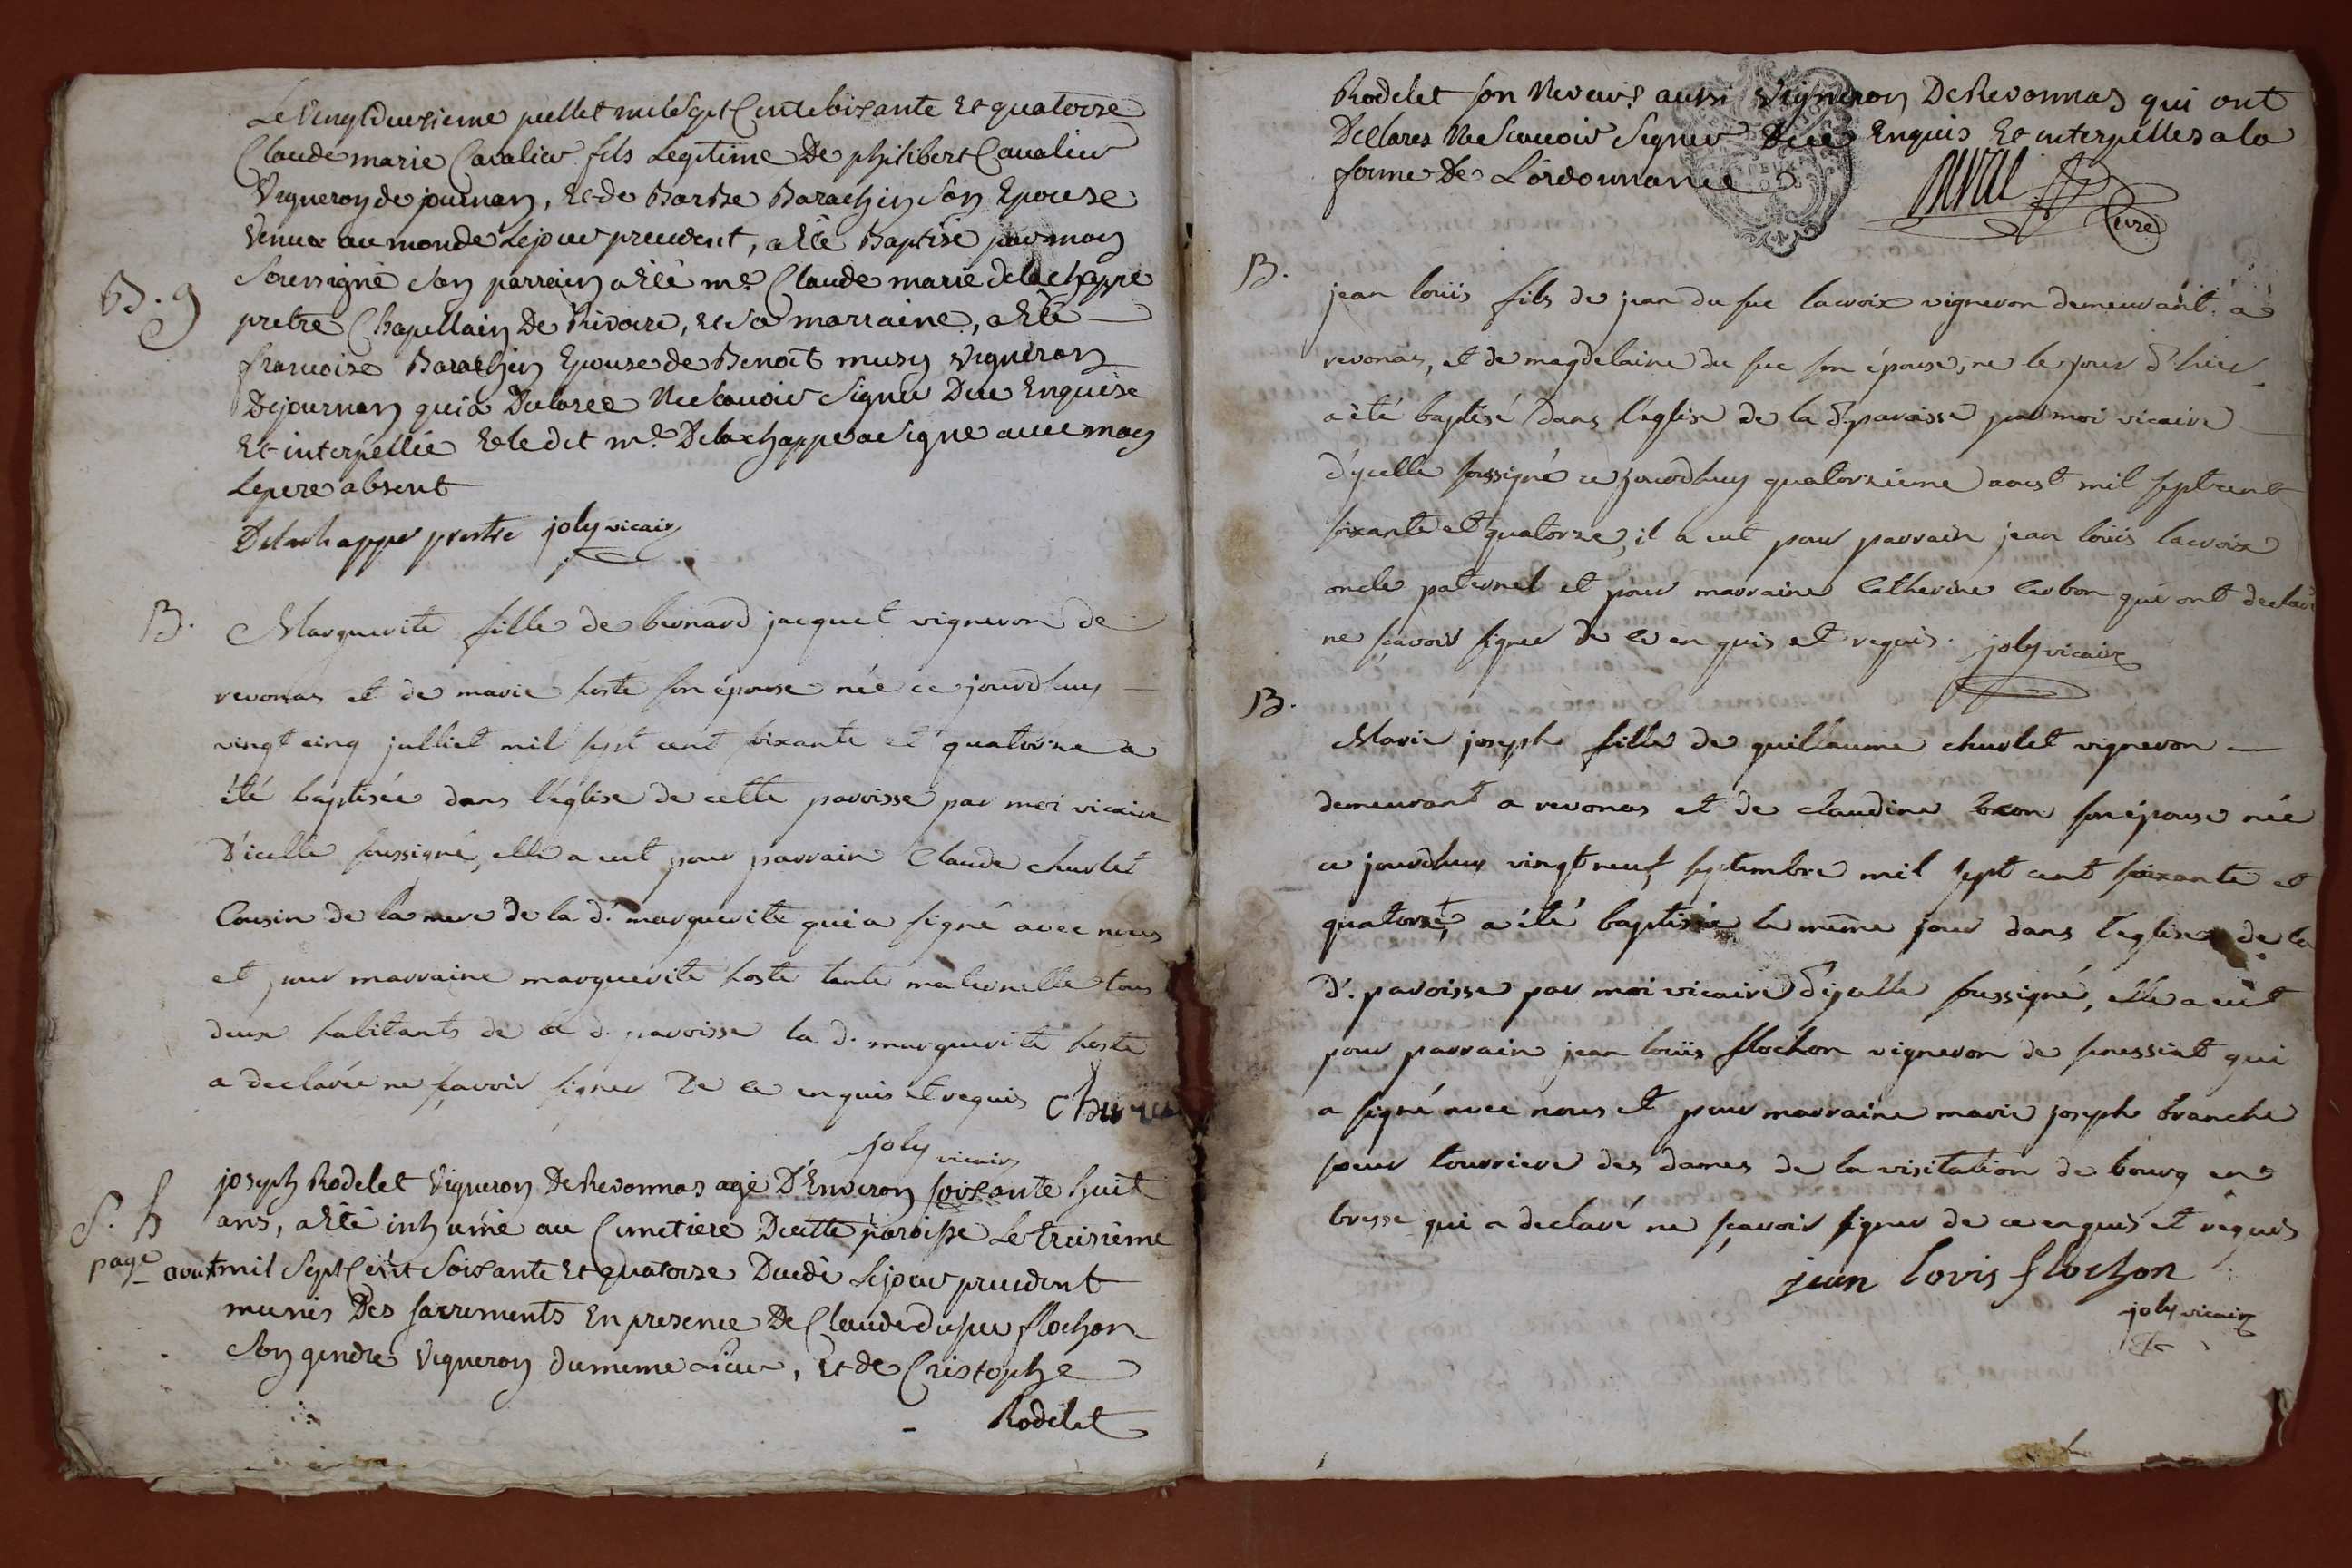 Le Vingtdeuxieme juellet mil Sept Cent Soixante Et quatorze
Claude marie Cavalier fils Legitime De philibert Cavalier
Vigneron de journan, Et de Barbe Barachin son Epouse
Venue au monde Le jour precedent, a Eté Baptisé par moy
B. g Soussigné Son parrain a été mr. Claude marie delachappe
pretre Chapellain De Rivoire, et Sa marraine, a Eté
francoise Barachin Epouse de Benoit musy Vigneron
De journan qui a Declaree Ne Scavoir Signer Due Enquise
Et interpellée Et le dit mr. Delachappe a Signe avec moy
Le pere absent
Delachappe prestre joly vicaire
B. Marguerite fille de bernard jacquet vigneron de
revonas et de marie hoste son épouse née ce jourdhuy
vingt cinq julliet mil sept cent soixante et quatorze a
été baptisée dans l'église de cette paroisse par moi vicaire
D'icelle soussigné, elle a eut pour parrain Claude churlet
Cousin de la mere de la d. marguerite qui a signé avec nous
et pour marraine marguerite hoste tante maternelle tous
deux habitants de la d. paroisse la d. marguerite hoste
a declarée ne sçavoir signer De ce enquis et requis
joly vicaire
S. h joseph Rodelet Vigneron De Revonnas agé D'Environ soixante huit
ans, a Eté inhumé au Cimetiere De cette paroisse Le troisieme
page aout mil Sept Cent Soixante Et quatorze Decedé Le jour precedent
munis Des sacrements En presence De Claude dusuc flochon
Son gendre Vigneron du meme Lieu, Et de Cristophe
Rodelet
Rodelet son Neveur aussi Vigneron De Revonnas qui ont
Declares Ne Scavoir Signer Due Enquis Et interpelles a la
forme De L'ordonnance
Curé
B. jean loüis fils de jean du suc lacroix vigneron demeurant à
revonas, et de magdelaine du suc son épouse, ne le jour d'hier
a été baptisé dans l'église de la d. paroisse par moi vicaire
d'ycelle soussigné ce jourdhuy quatorzieme aoust mil sept cent
soixante et quatorze, il a eut pour parrain jean loüis lacroix
oncle paternel et pour marraine Catherine Carbon qui ont declaré
ne sçavoir signer de ce enquis et requis. joly vicaire
B. Marie joseph fille de guillaume churlet vigneron
demeurant a revonas et de claudine son épouse née
ce jourdhuy vingt neuf septembre mil sept cent soixante et
quatorze, a été baptisée le même jour dans l'eglise de la
d. paroisse par moi vicaire d'ycelle soussigné, elle a eut
pour parrain jean loüis flochon vigneron de senissiat qui
a signé avec nous et pour marraine marie joseph branche
soeur tourriere des dames de la visitation de bourg en
bresse qui a declaré ne sçavoir signer de ce enquis et requis
jean lovis flochon
joly vicaire